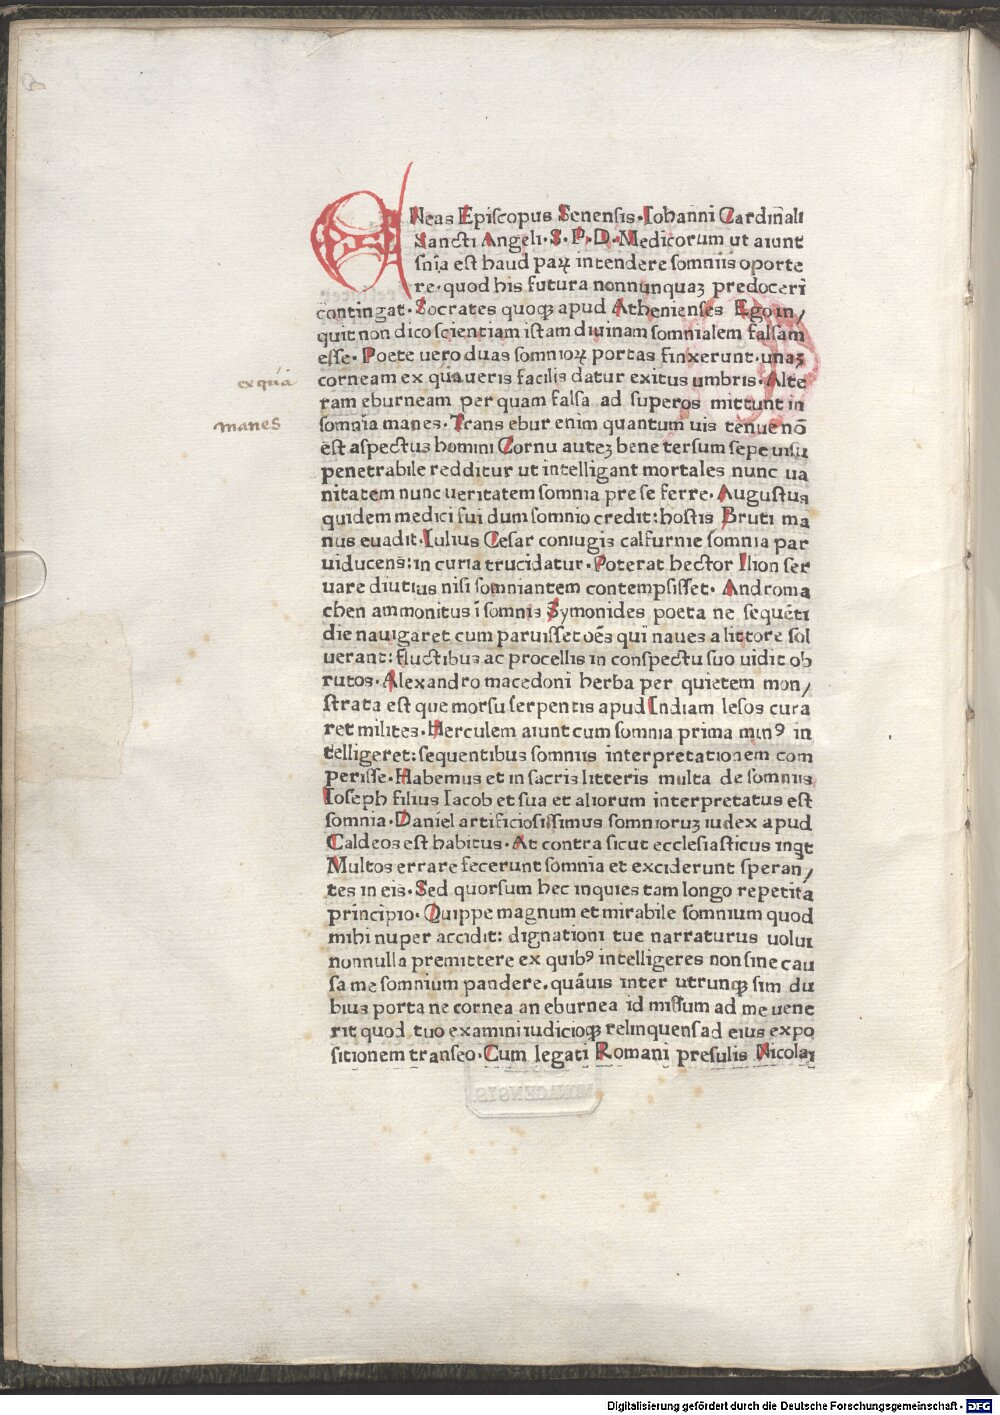 ENeas Episcopus Senensis. Iohanni Cardinali
Sancti Angeli. S. P. D. Medicorum ut aiunt
snīa est haud paꝝ intendere somniis oporte
re. quod his futura nonnunquaꝫ predoceri
contingat. Socrates quoqꝫ apud Athenienses Ego in/
quit non dico scientiam istam diuinam somnialem falsam
esse. Poete uero duas somnioꝝ portas finxerunt. unaꝫ
corneam ex qua ueris facilis datur exitus umbris. Alte
ex qua
ram eburneam per quam falsa ad superos mittunt in
somnia manes. Trans ebur enim quantum uis tenue nō
manes
est aspectus homini Cornu auteꝫ bene tersum sepe uisu
penetrabile redditur ut intelligant mortales nunc ua
nitatem nunc ueritatem somnia pre se ferre. Augustus
quidem medici sui dum somnio credit: hostis Bruti ma
nus euadit. Iulius Cesar coniugis calfurnie somnia par
uiducens: in curia trucidatur. Poterat hector Ilion ser
uare diutius nisi somniantem contempsisset. Androma
chen ammonitus ī somnis Symonides poeta ne sequēti
die nauigaret cum paruisset oēs qui naues a littore sol
uerant: fluctibus ac procellis in conspectu suo uidit ob
rutos. Alexandro macedoni herba per quietem mon/
strata est que morsu serpentis apud Indiam lesos cura
ret milites. Herculem aiunt cum somnia prima minꝰ in
telligeret: sequentibus somniis interpretationem com
perisse. Habemus et in sacris litteris multa de somniis
Ioseph filius Iacob et sua et aliorum interpretatus est
somnia. Daniel artificiosissimus somnioruꝫ iudex apud
Caldeos est habitus. At contra sicut ecclesiasticus inqt
Multos errare fecerunt somnia et exciderunt speran/
tes in eis. Sed quorsum hec inquies tam longo repetita
principio. Quippe magnum et mirabile somnium quod
mihi nuper accidit: dignationi tue narraturus uolui
nonnulla premittere ex quibꝰ intelligeres non sine cau
sa me somnium pandere. quāuis inter utrunqꝫ sim du
bius porta ne cornea an eburnea id missum ad me uene
rit quod tuo examini iudicioqꝫ relinquens ad eius expo
sitionem transeo. Cum legati Romani presulis Nicolai
Digitalisierung gefördert durch die Deutsche Forschungsgemeinschaft - DFG